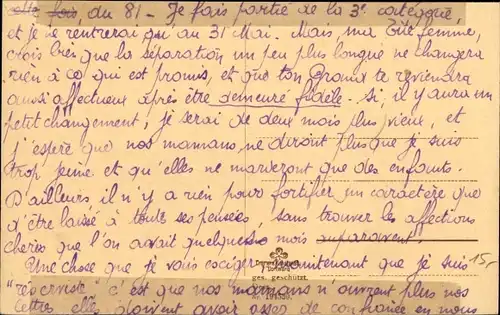 cette fois, du 81 - Je fais partie de la 3e catégorie,
et je ne rentrerai qu'au 31 Mai. Mais ma Tite femme,
crois bien que la séparation un peu plus longue ne changera
rien à ce qui est promis, et que ton Grand te reviendra
aussi affectueux après être demeuré fidèle. Si, il y aura un
petit changement, je serai de deux mois plus vieux, et
j'espère que nos mamans, ne diront plus que je suis
trop jeune et qu'elles ne marieront que des enfants.
D'ailleurs, il n'y a rien pour fortifier un caractère que
d'être laissé à toutes ses pensées, sans trouver les affections
chères que l'on avait quelques mois auparavant".
Une chose que je vais exiger maintenant que je suis
15,-
ges. geschützt.
"réserviste" c'est que nos mamans n'ouvrent plus nos
lettres, elles doivent avoir assez de confiance en nous